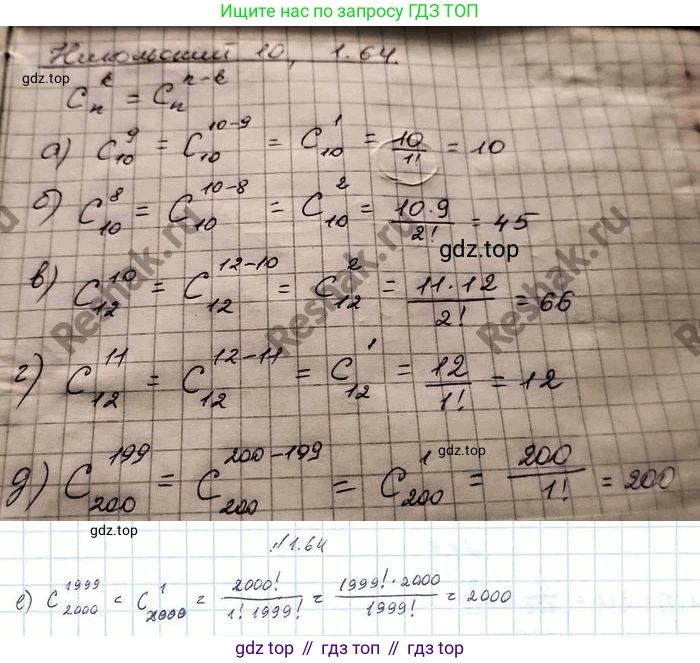 Ищите правильные ответы ГДЗ ТОП
Никольский 10, 1.64.
gdz.top
C_n^k = C_n^{n-k}
а) C_{10}^9 = C_{10}^{10-9} = C_{10}^1 = 10/1! = 10
б) C_{10}^8 = C_{10}^{10-8} = C_{10}^2 = 10·9/2! = 45
gdz.top
в) C_{12}^{10} = C_{12}^{12-10} = C_{12}^2 = 11·12/2! = 66
Reshak.ru
Reshak.ru
Reshak.ru
г) C_{12}^{11} = C_{12}^{12-11} = C_{12}^1 = 12/1! = 12
gdz.top
д) C_{200}^{199} = C_{200}^{200-199} = C_{200}^1 = 200/1! = 200
gdz.top
№1.64
е) C_{2000}^{1999} = C_{2000}^1 = 2000!/1! 1999! = 1999!·2000/1999! = 2000
gdz.top // гдз топ // гдз.топ